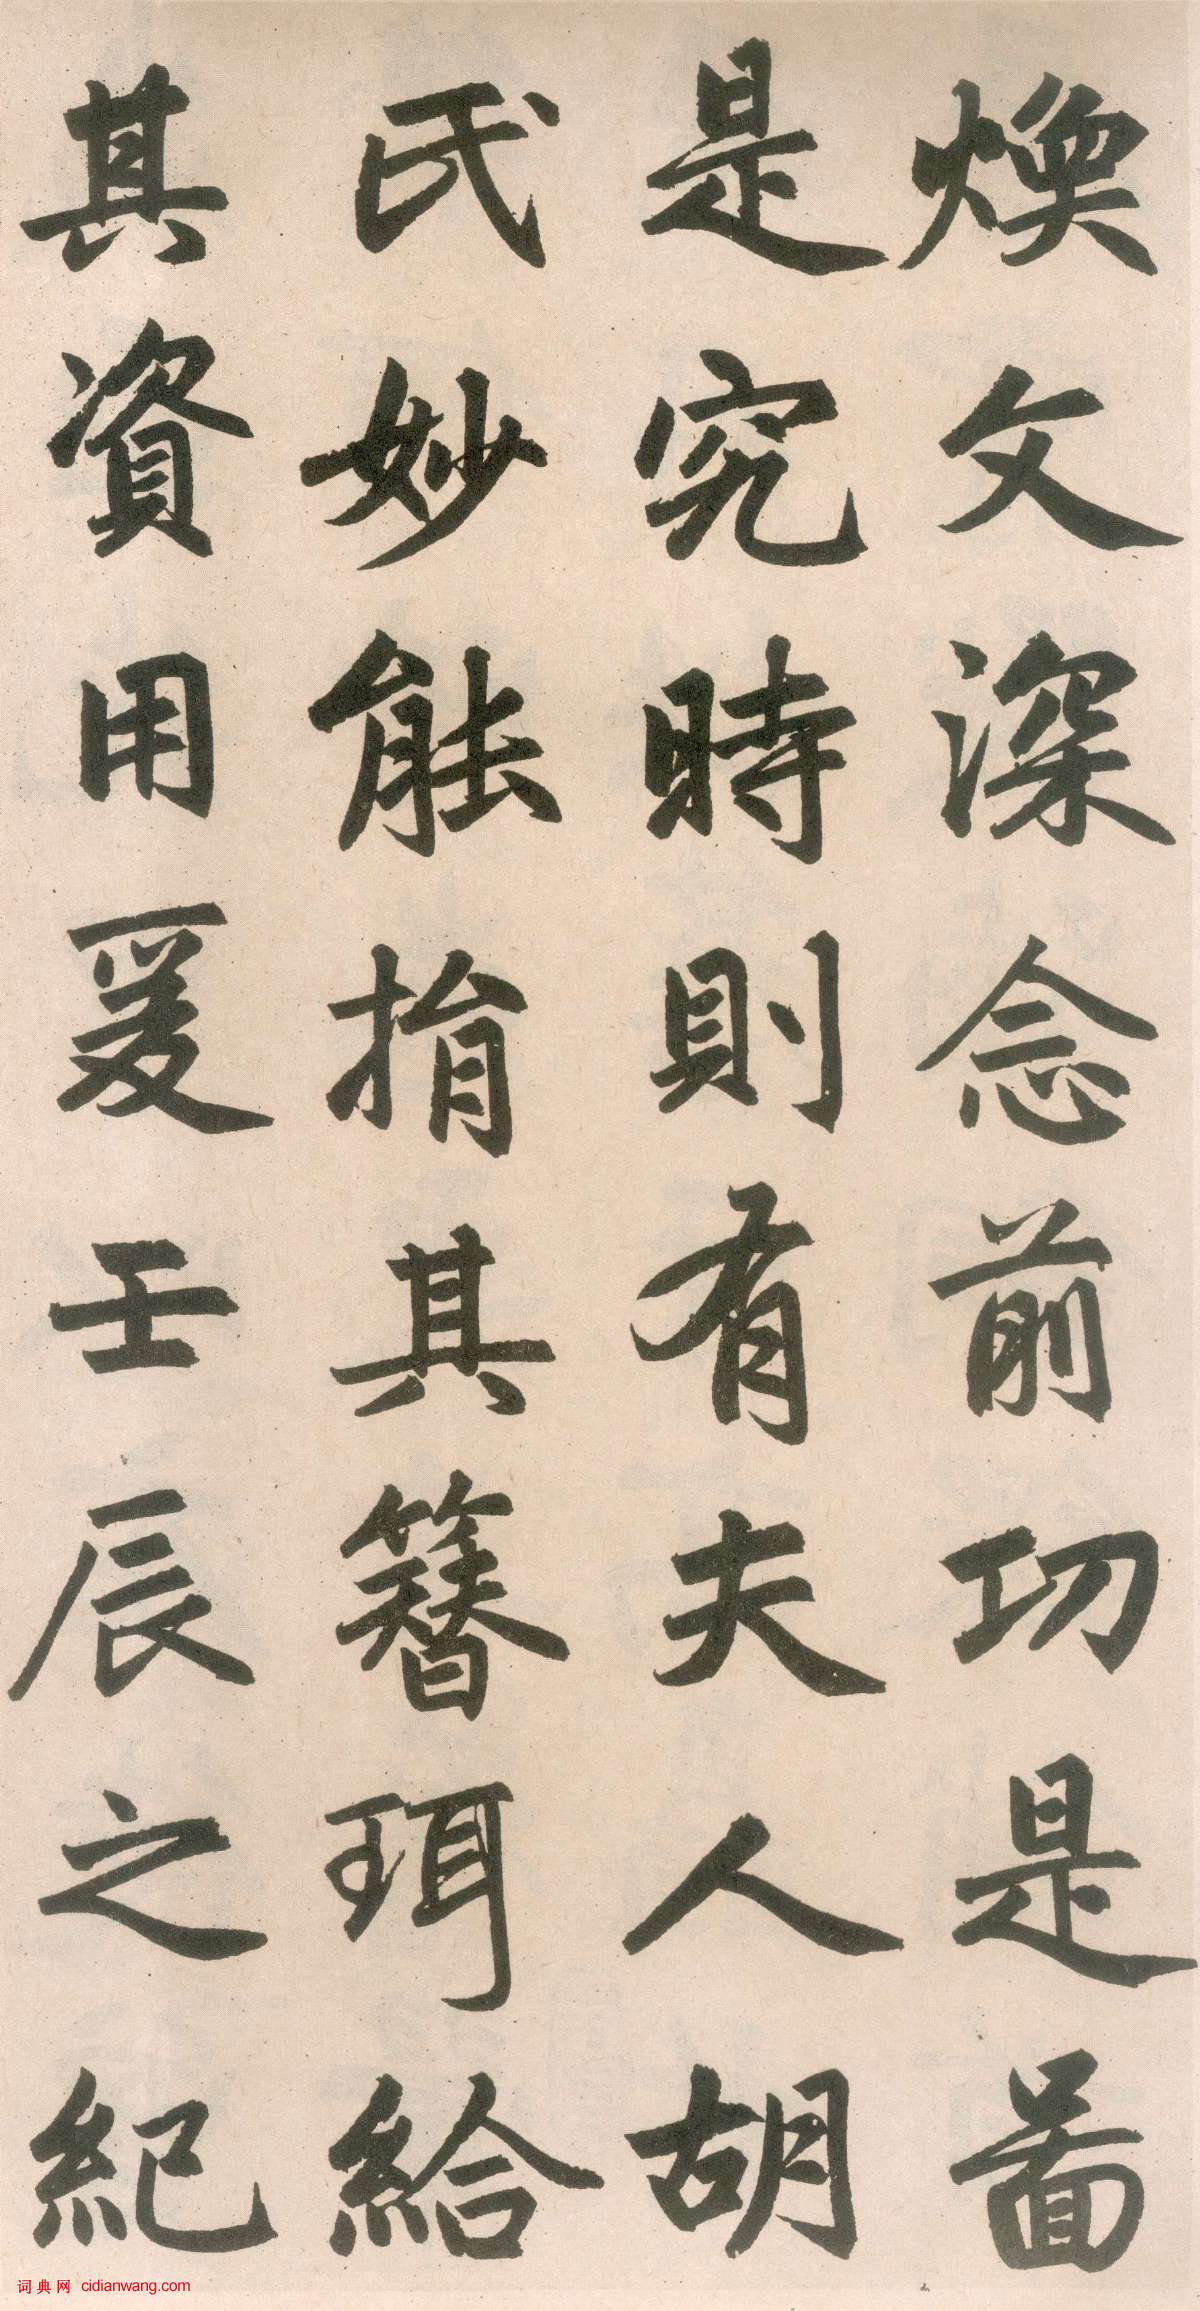 煥文深念前功是啚
是究時則有夫人胡
氏妙能捐其簪珥給
其資用爰壬辰之紀
词典网 cidianwang.com